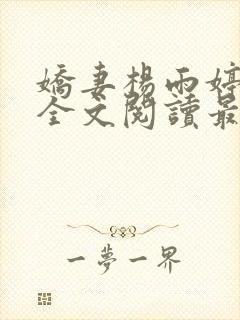 嬌妻楊雨婷
全文閱讀最
一夢一界